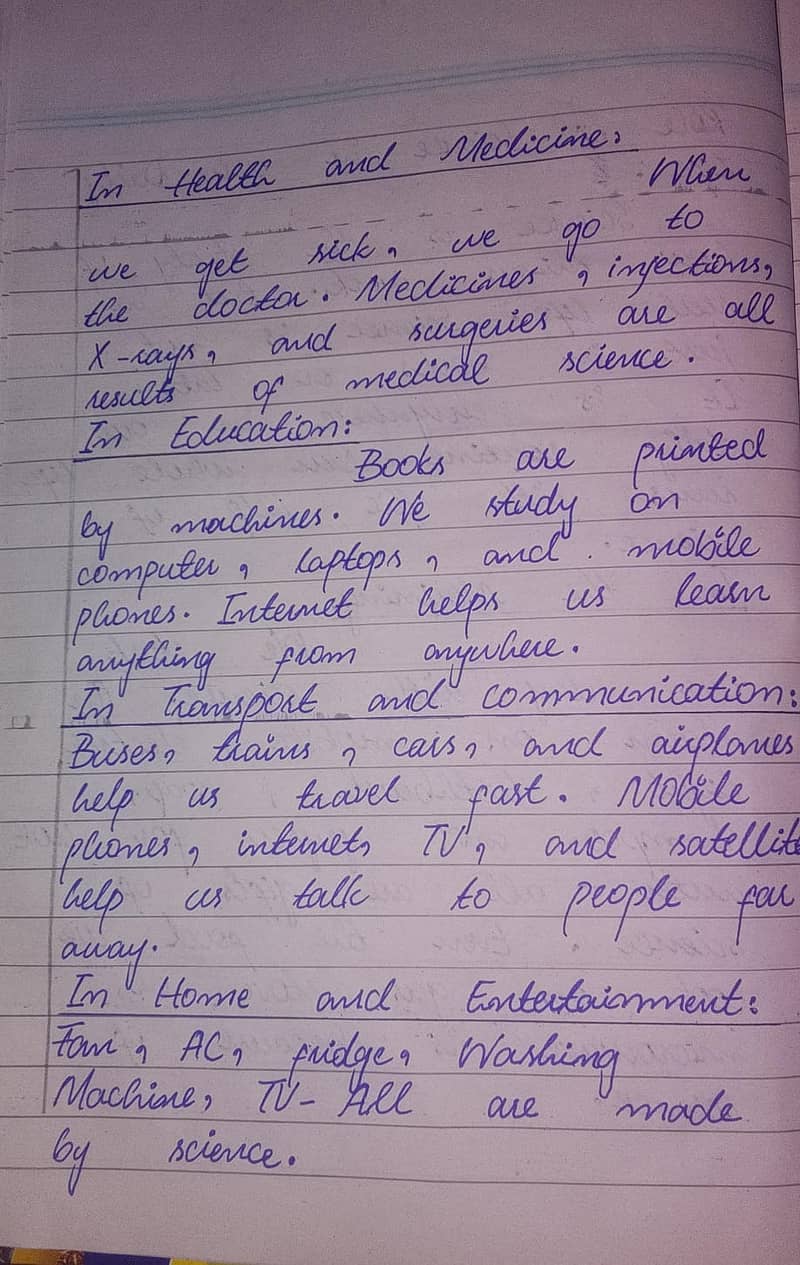 In Health and Medicine:
When
we get sick, we go to
the doctor. Medicines, injections,
X-rays, and surgeries are all
results of medical science.
In Education:
Books are printed
by machines. We study on
computer, laptops, and mobile
phones. Internet helps us learn
anything from anywhere.
In Transport and communication:
Buses, trains, cars, and airplanes
help us travel fast. Mobile
phones, internet, TV, and satellite
help us talk to people far
away.
In Home and Entertainment:
Fan, AC, fridge, Washing
Machine, TV- All are made
by science.